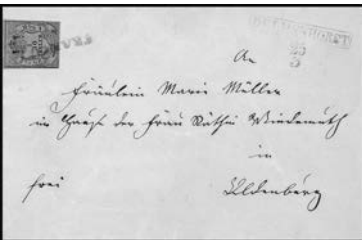 FRA
DELMENHORST
25
3
An
Fräulein Marie Müller
im Hause der Frau Räthin Wiedemuth
in
frei
Oldenburg